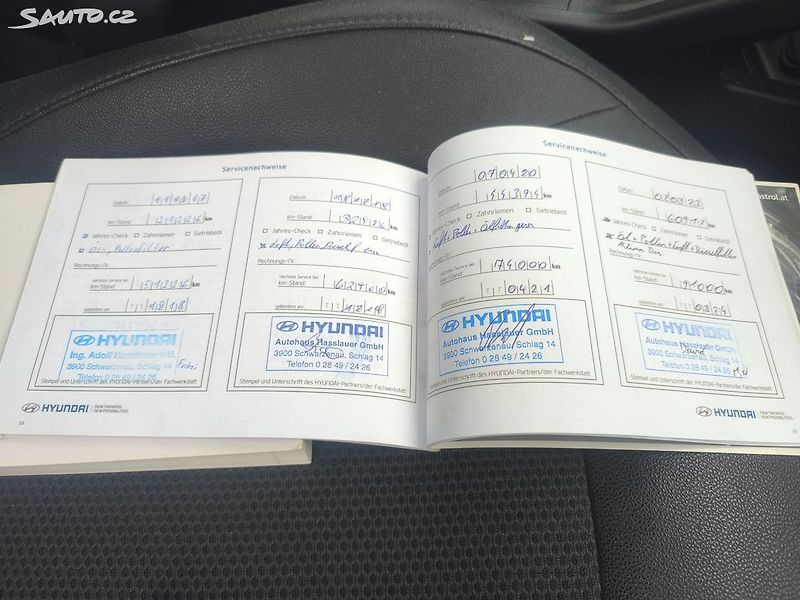 SAUTO.CZ
Servicenachweise
Datum
km-Stand km
Jahres-Check Zahnriemen Getriebeöl
Öl-, Pollenfilter
Rechnungs-Nr.:
nächstes Service bei
km-Stand: km
spätestens am: T T 1 2 1 8
HYUNDAI
Ing. Adolf Hasslauer e.U.
3900 Schwarzenau, Schlag 14
Telefon 0 28 49 / 24 26
Stempel und Unterschrift des HYUNDAI-Partners/der Fachwerkstatt
Datum:
km-Stand: km
Jahres-Check Zahnriemen Getriebeöl
Rechnungs-Nr.:
nächstes Service bei
km-Stand: km
spätestens am: T T
HYUNDAI
Autohaus Hasslauer GmbH
3900 Schwarzenau, Schlag 14
Telefon 0 28 49 / 24 26
Stempel und Unterschrift des HYUNDAI-Partners/der Fachwerkstatt
HYUNDAI NEW THINKING. NEW POSSIBILITIES.
34
Servicenachweise
Datum: 07 04 20
km-Stand: km
Jahres-Check Zahnriemen Getriebeöl
Rechnungs-Nr.:
nächstes Service bei
km-Stand: 74000 km
spätestens am: T T 04 21
HYUNDAI
Autohaus Hasslauer GmbH
3900 Schwarzenau, Schlag 14
Telefon 0 28 49 / 24 26
Stempel und Unterschrift des HYUNDAI-Partners/der Fachwerkstatt
Datum:
km-Stand: 60912 km
Jahres-Check Zahnriemen Getriebeöl
Rechnungs-Nr.:
nächstes Service bei
km-Stand: 91000 km
spätestens am: T T 03 24
HYUNDAI
Autohaus Hasslauer GmbH
3900 Schwarzenau, Schlag 14
Telefon 0 28 49 / 24 26
Stempel und Unterschrift des HYUNDAI-Partners/der Fachwerkstatt
HYUNDAI NEW THINKING. NEW POSSIBILITIES.
35
astrol.at